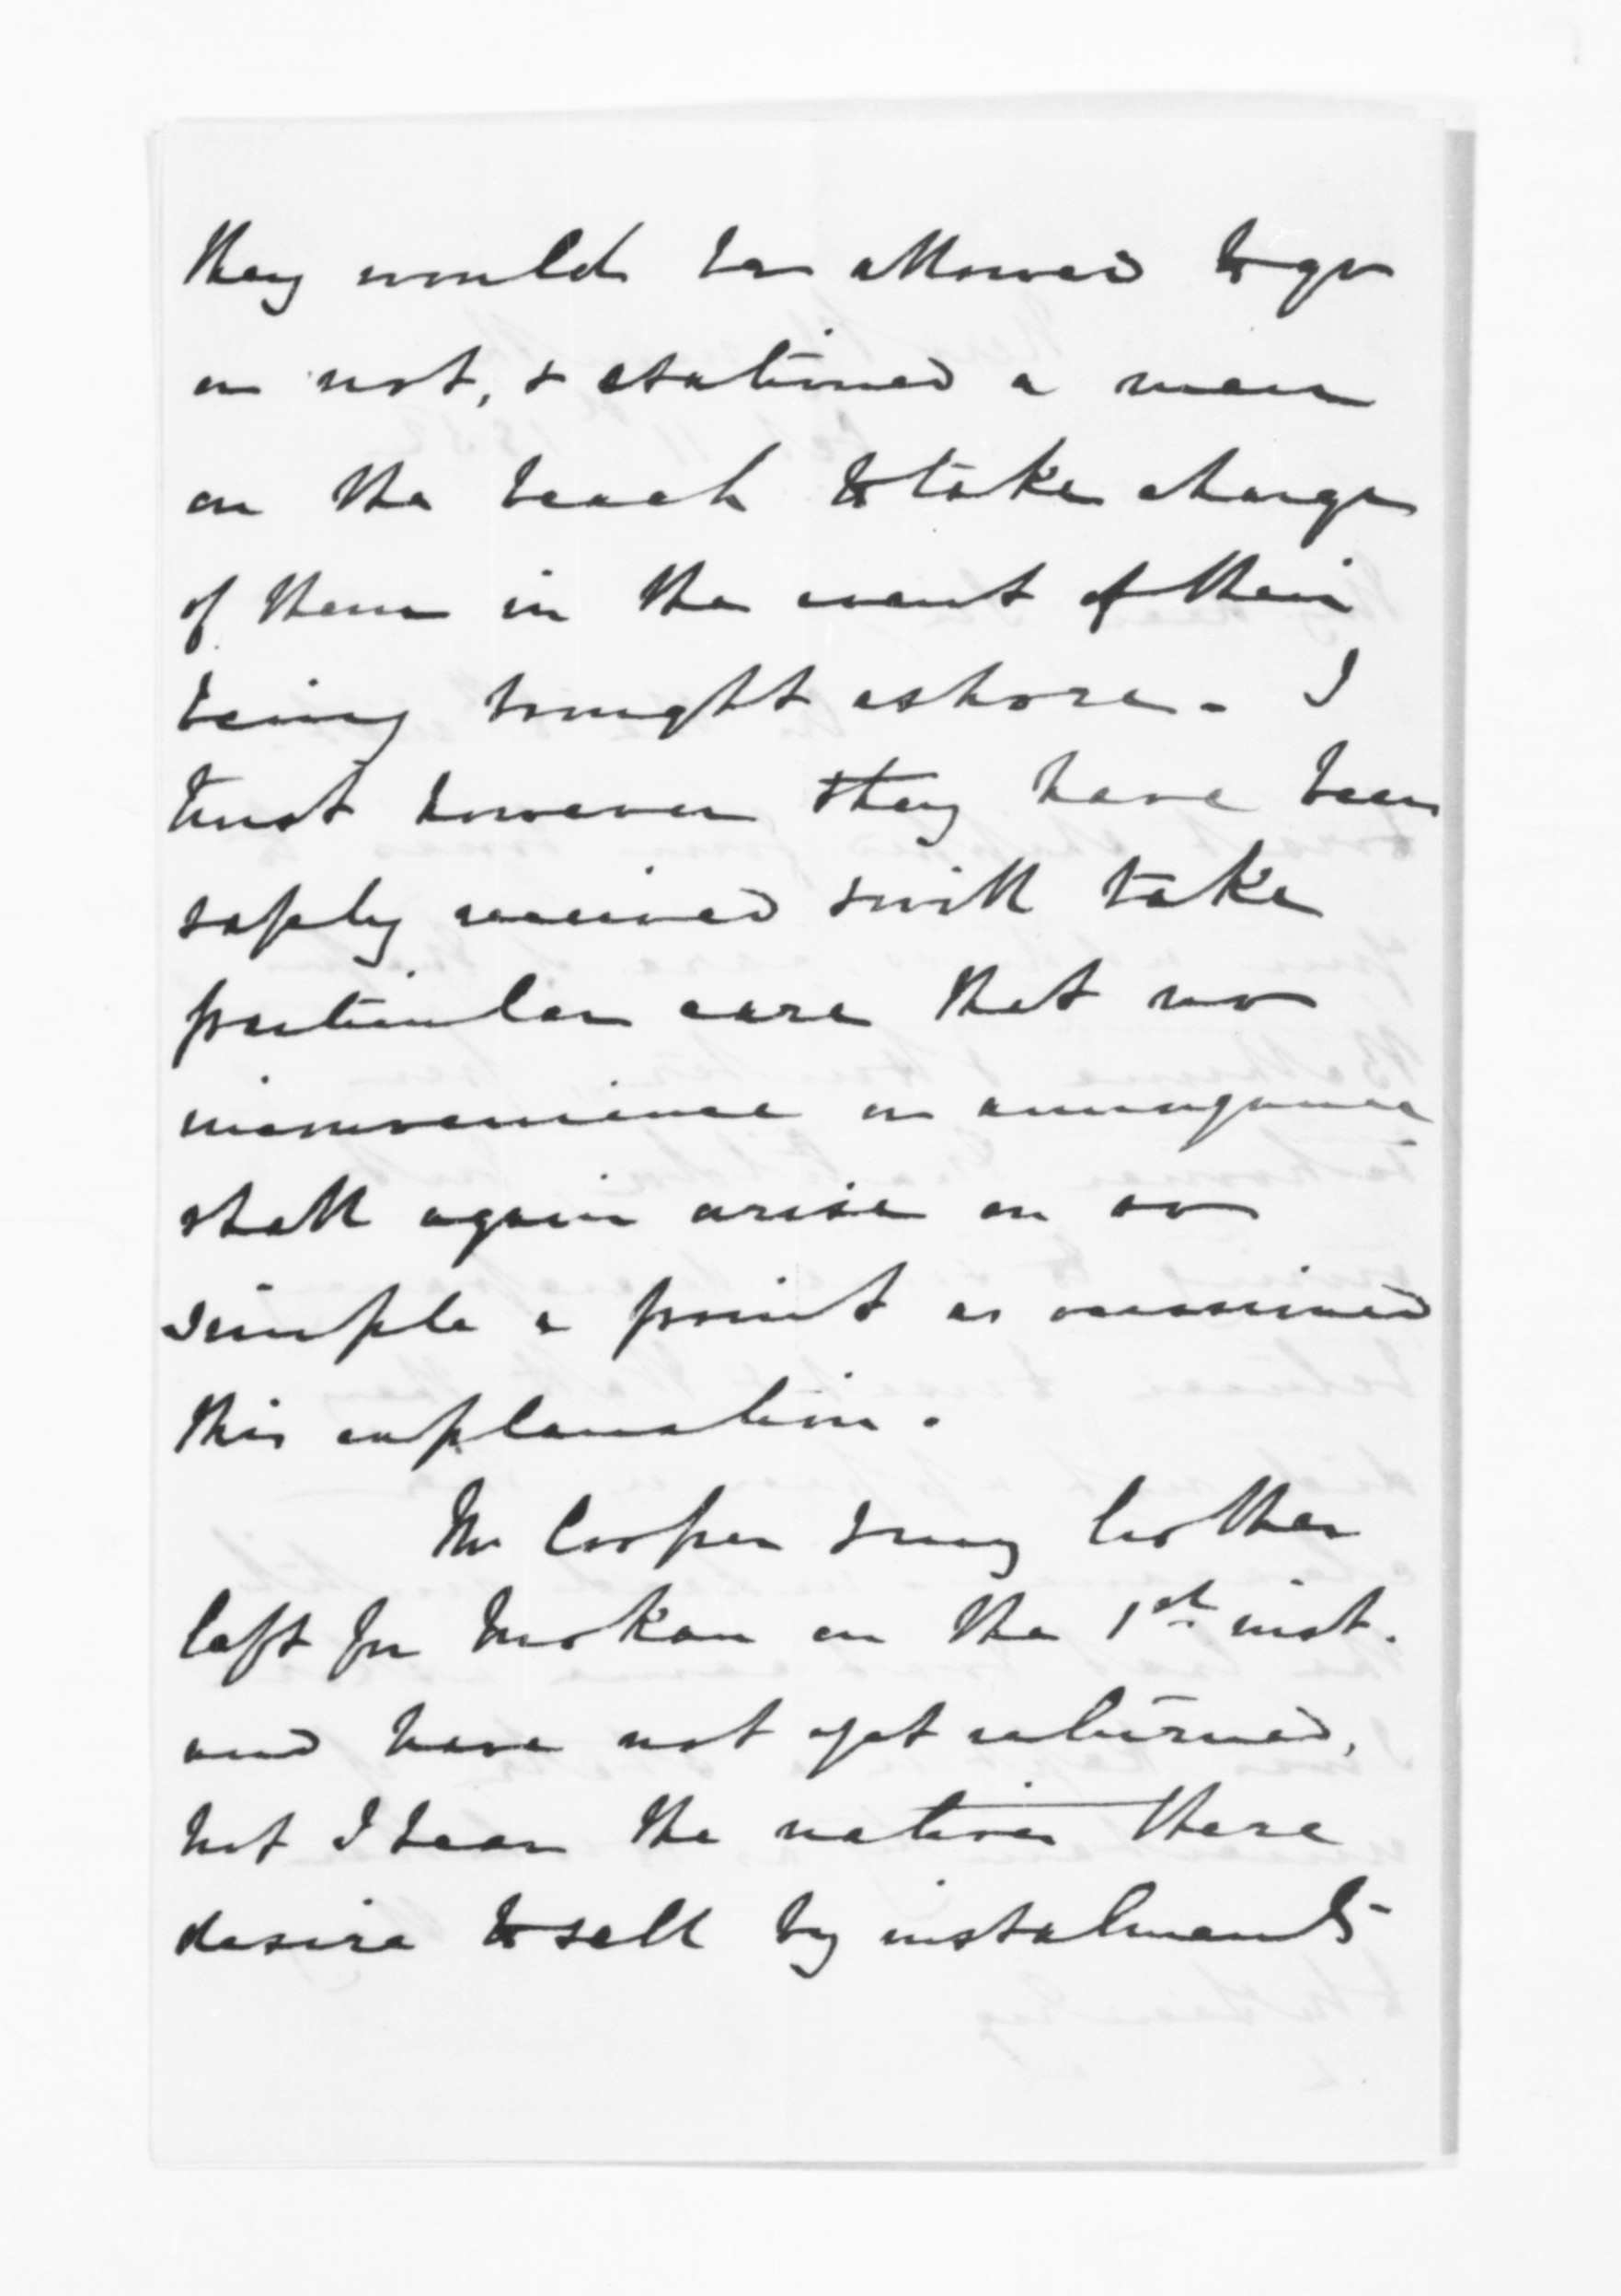 they would be allowed to go
or not, & stationed a man
on the beach to take charge
of them in the event of their
being brought ashore. I
trust however they have been
safely received & will take
particular care that no
inconvenience or annoyance
shall again arise on so
simple a point as occasioned
this explanation.
Mr Cooper & my brother
left for Mokau on the 1st inst.
and have not yet returned,
but I hear the natives there
desire to sell by instalments